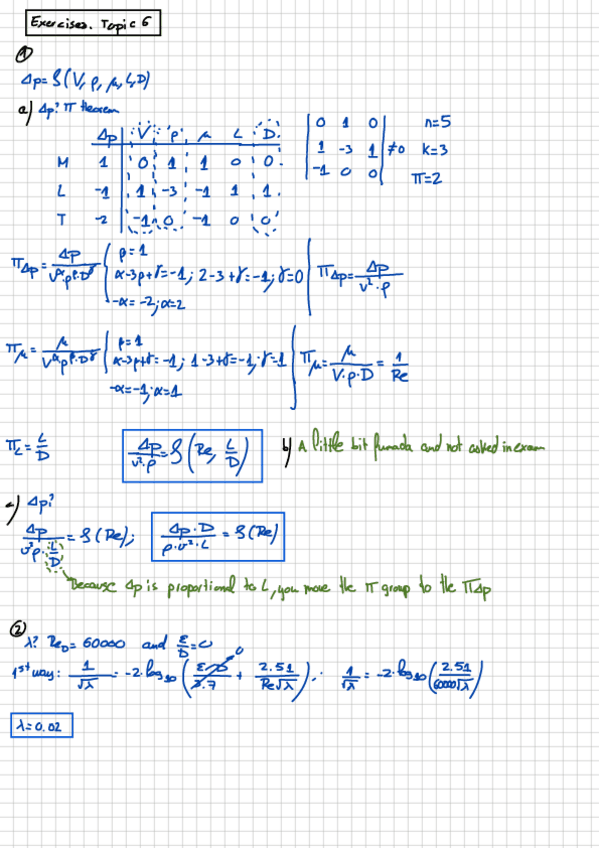 Exercises. Topic 6
1
Δp = f(V, ρ, μ, L, D)
a) Δp? π theorem
Δp V ρ μ L D
M 1 0 1 1 0 0
L -1 1 -3 -1 1 1
T -2 -1 0 -1 0 0
|0 1 0; 1 -3 1; -1 0 0| ≠0
n=5
k=3
π=2
πΔp = Δp / (V^α ρ^β D^γ) { β=1
α-3β+γ=-1; 2-3+γ=-1; γ=0
-α=-2; α=2
πΔp = Δp / (v²·ρ)
πμ = μ / (V^α ρ^β·D^γ) { β=1
α-3β+γ=-1; 1-3+γ=-1; γ=1
-α=-1; α=1
πμ = μ / (V·ρ·D) = 1/Re
πL = L/D
Δp / (v²·ρ) = f(Re, L/D)
b) A little bit fumada and not asked in exam
c) Δp?
Δp / (v²ρ·L/D) = f(Re); Δp·D / (ρ·v²·L) = f(Re)
Because Δp is proportional to L, you move the π group to the πΔp
2
λ? Re_D = 60000 and ε/D = 0
1st way: 1/√λ = -2·log10(ε/D / 3.7 + 2.51 / Re√λ); 1/√λ = -2·log10(2.51 / 60000√λ)
0
λ=0.02